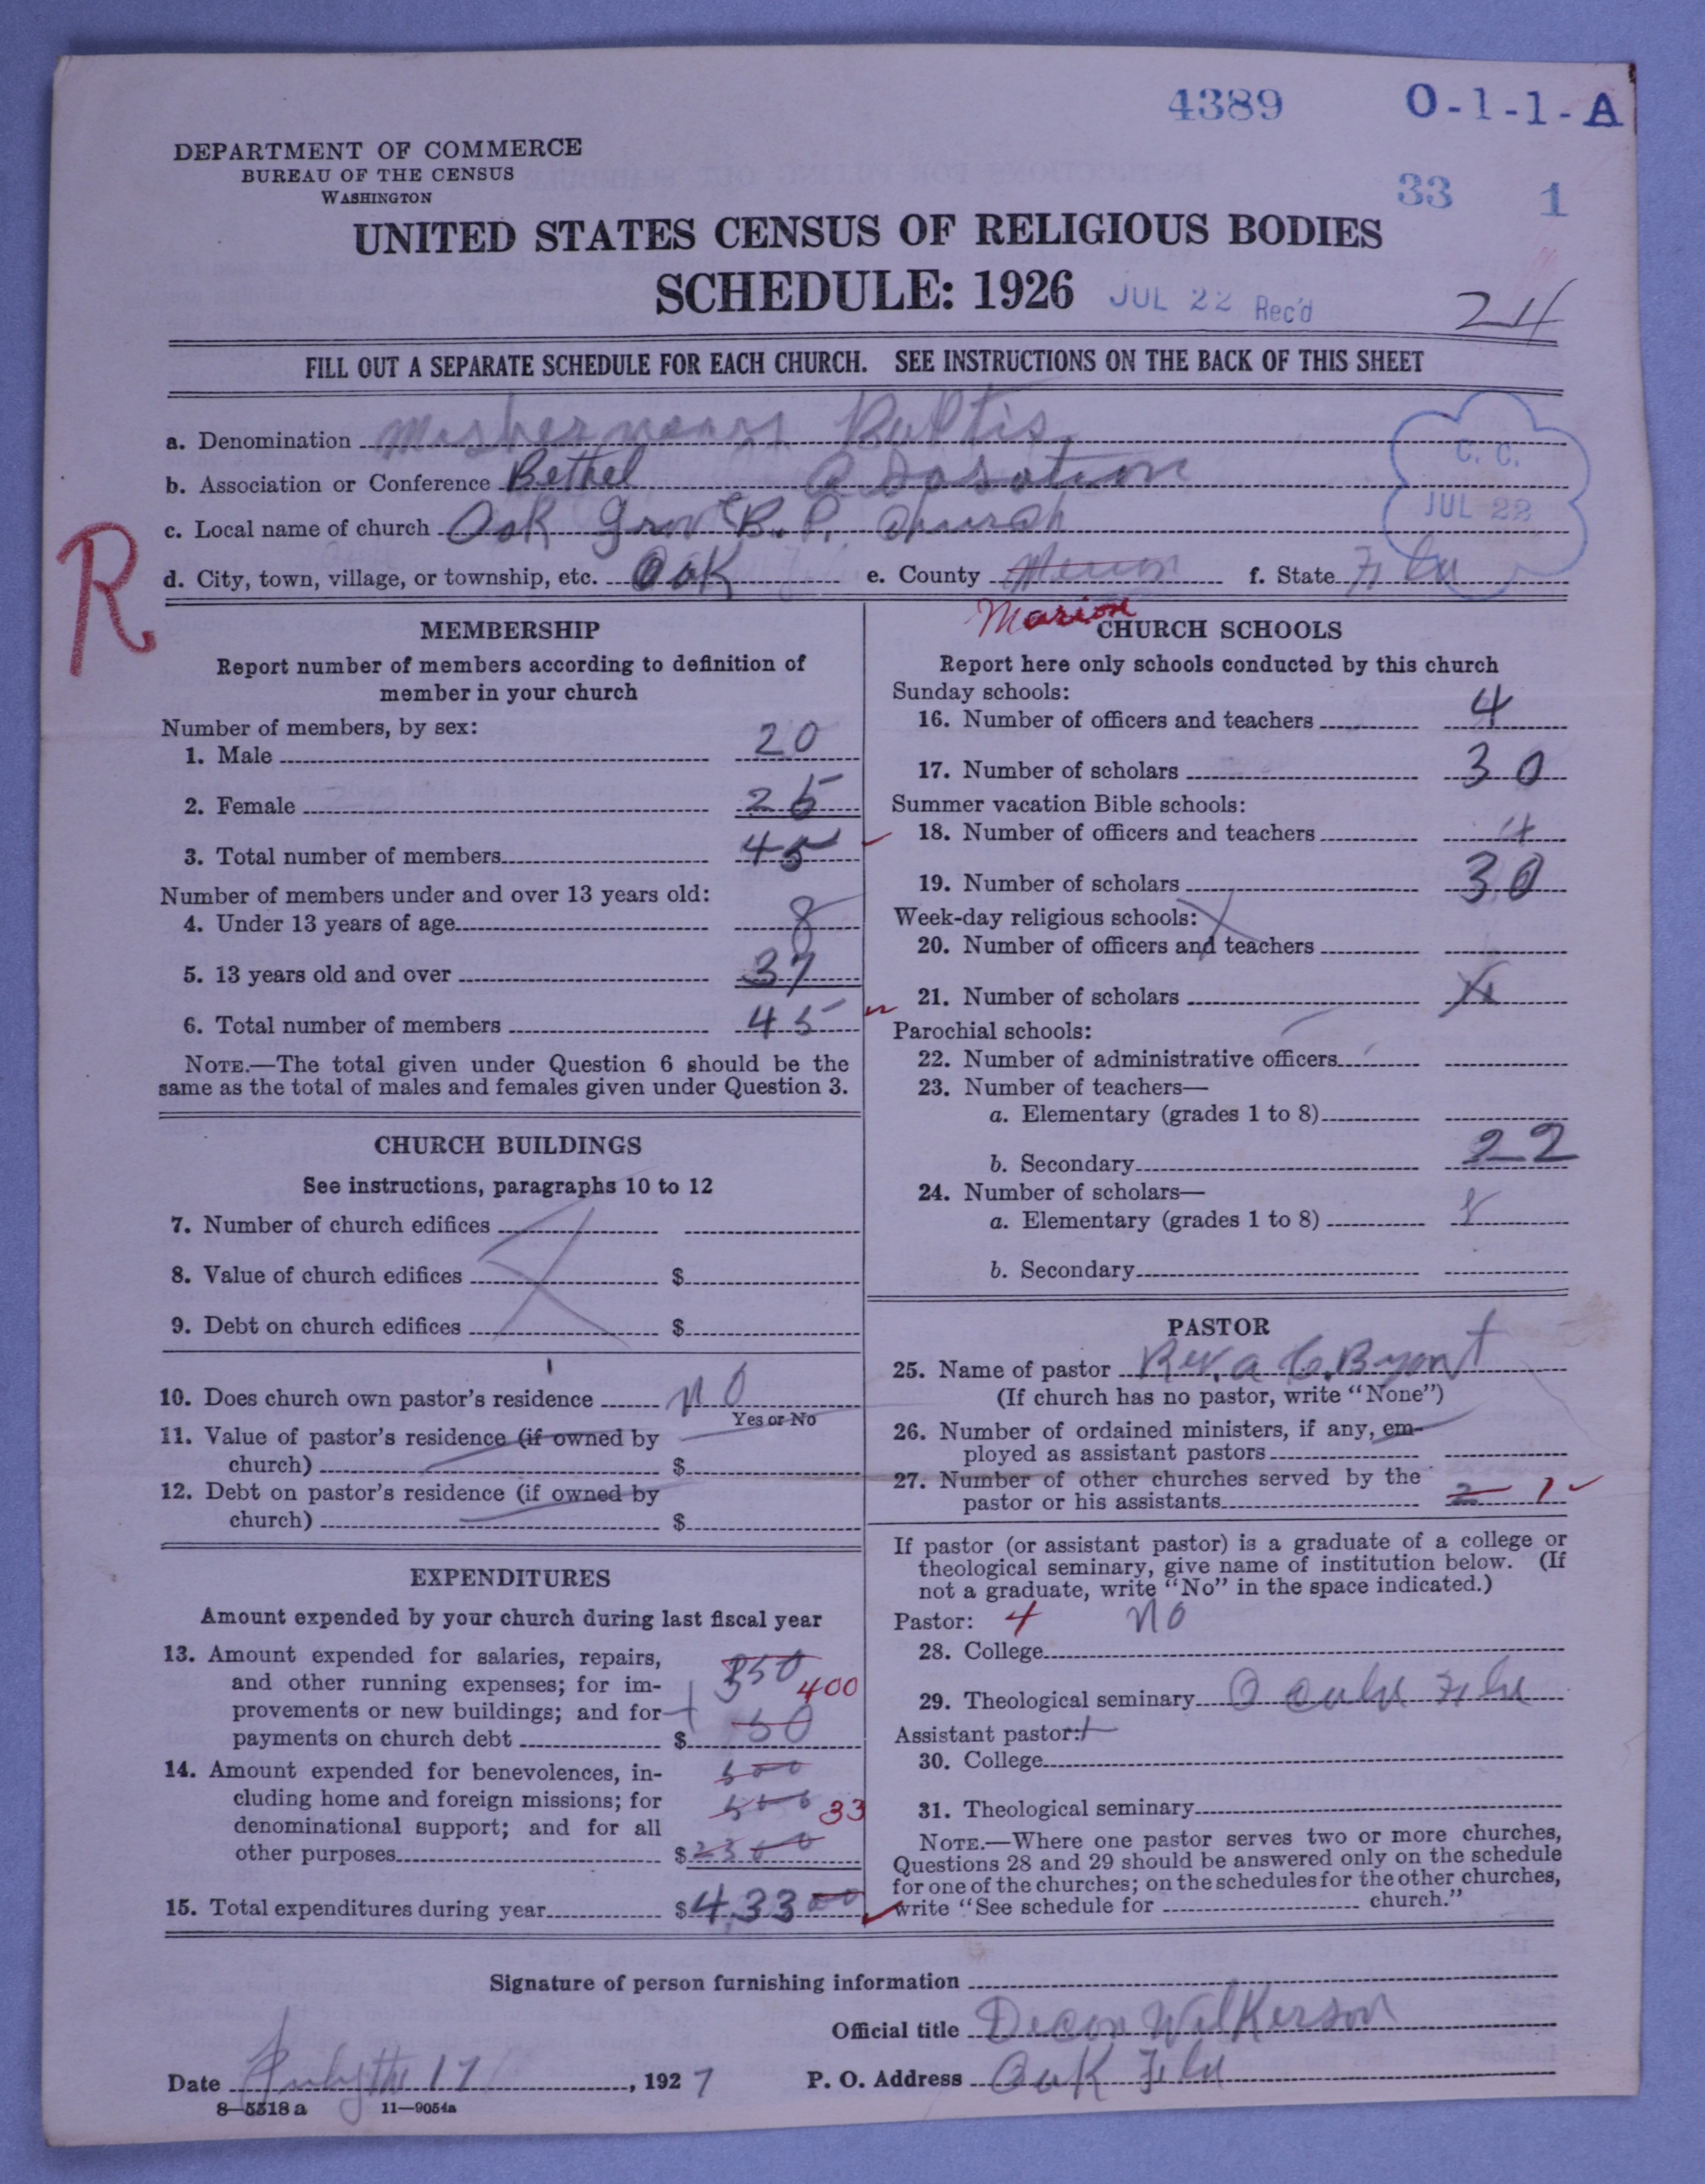 4389 O-1-1-A
DEPARTMENT OF COMMERCE
BUREAU OF THE CENSUS
WASHINGTON
33 1
UNITED STATES CENSUS OF RELIGIOUS BODIES
SCHEDULE: 1926 JUL 22 Rec'd 24
FILL OUT A SEPARATE SCHEDULE FOR EACH CHURCH. SEE INSTRUCTIONS ON THE BACK OF THIS SHEET
a. Denomination Baptis
C. C.
JUL 22
b. Association or Conference Bethel Asosation
c. Local name of church Oak Grove B. P. Church
R
d. City, town, village, or township, etc. Oak e. County f. State Fla
Marion
MEMBERSHIP
Report number of members according to definition of
member in your church
Number of members, by sex:
1. Male 20
2. Female 25
3. Total number of members 45
Number of members under and over 13 years old:
4. Under 13 years of age 8
5. 13 years old and over 37
6. Total number of members 45
NOTE.—The total given under Question 6 should be the
same as the total of males and females given under Question 3.
CHURCH BUILDINGS
See instructions, paragraphs 10 to 12
7. Number of church edifices
8. Value of church edifices $
9. Debt on church edifices $
10. Does church own pastor's residence no
Yes or No
11. Value of pastor's residence (if owned by
church) $
12. Debt on pastor's residence (if owned by
church) $
EXPENDITURES
Amount expended by your church during last fiscal year
13. Amount expended for salaries, repairs,
and other running expenses; for im-
provements or new buildings; and for
payments on church debt $ 350 400
50
14. Amount expended for benevolences, in-
cluding home and foreign missions; for
denominational support; and for all
other purposes $ 500
500 33
2300
15. Total expenditures during year $ 433 00
CHURCH SCHOOLS
Report here only schools conducted by this church
Sunday schools:
16. Number of officers and teachers 4
17. Number of scholars 30
Summer vacation Bible schools:
18. Number of officers and teachers 4
19. Number of scholars 30
Week-day religious schools:
20. Number of officers and teachers
21. Number of scholars
Parochial schools:
22. Number of administrative officers
23. Number of teachers—
a. Elementary (grades 1 to 8)
b. Secondary 22
24. Number of scholars—
a. Elementary (grades 1 to 8) 8
b. Secondary
PASTOR
25. Name of pastor Rev. a C. Bryant
(If church has no pastor, write "None")
26. Number of ordained ministers, if any, em-
ployed as assistant pastors
27. Number of other churches served by the
pastor or his assistants 2 1
If pastor (or assistant pastor) is a graduate of a college or
theological seminary, give name of institution below. (If
not a graduate, write "No" in the space indicated.)
Pastor: 4 no
28. College
29. Theological seminary Fla
Assistant pastor:
30. College
31. Theological seminary
NOTE.—Where one pastor serves two or more churches,
Questions 28 and 29 should be answered only on the schedule
for one of the churches; on the schedules for the other churches,
write "See schedule for church."
Signature of person furnishing information
Official title Decon Wilkerson
Date July the 17, 1927 P. O. Address Oak Fla
8—5518 a 11—9054a